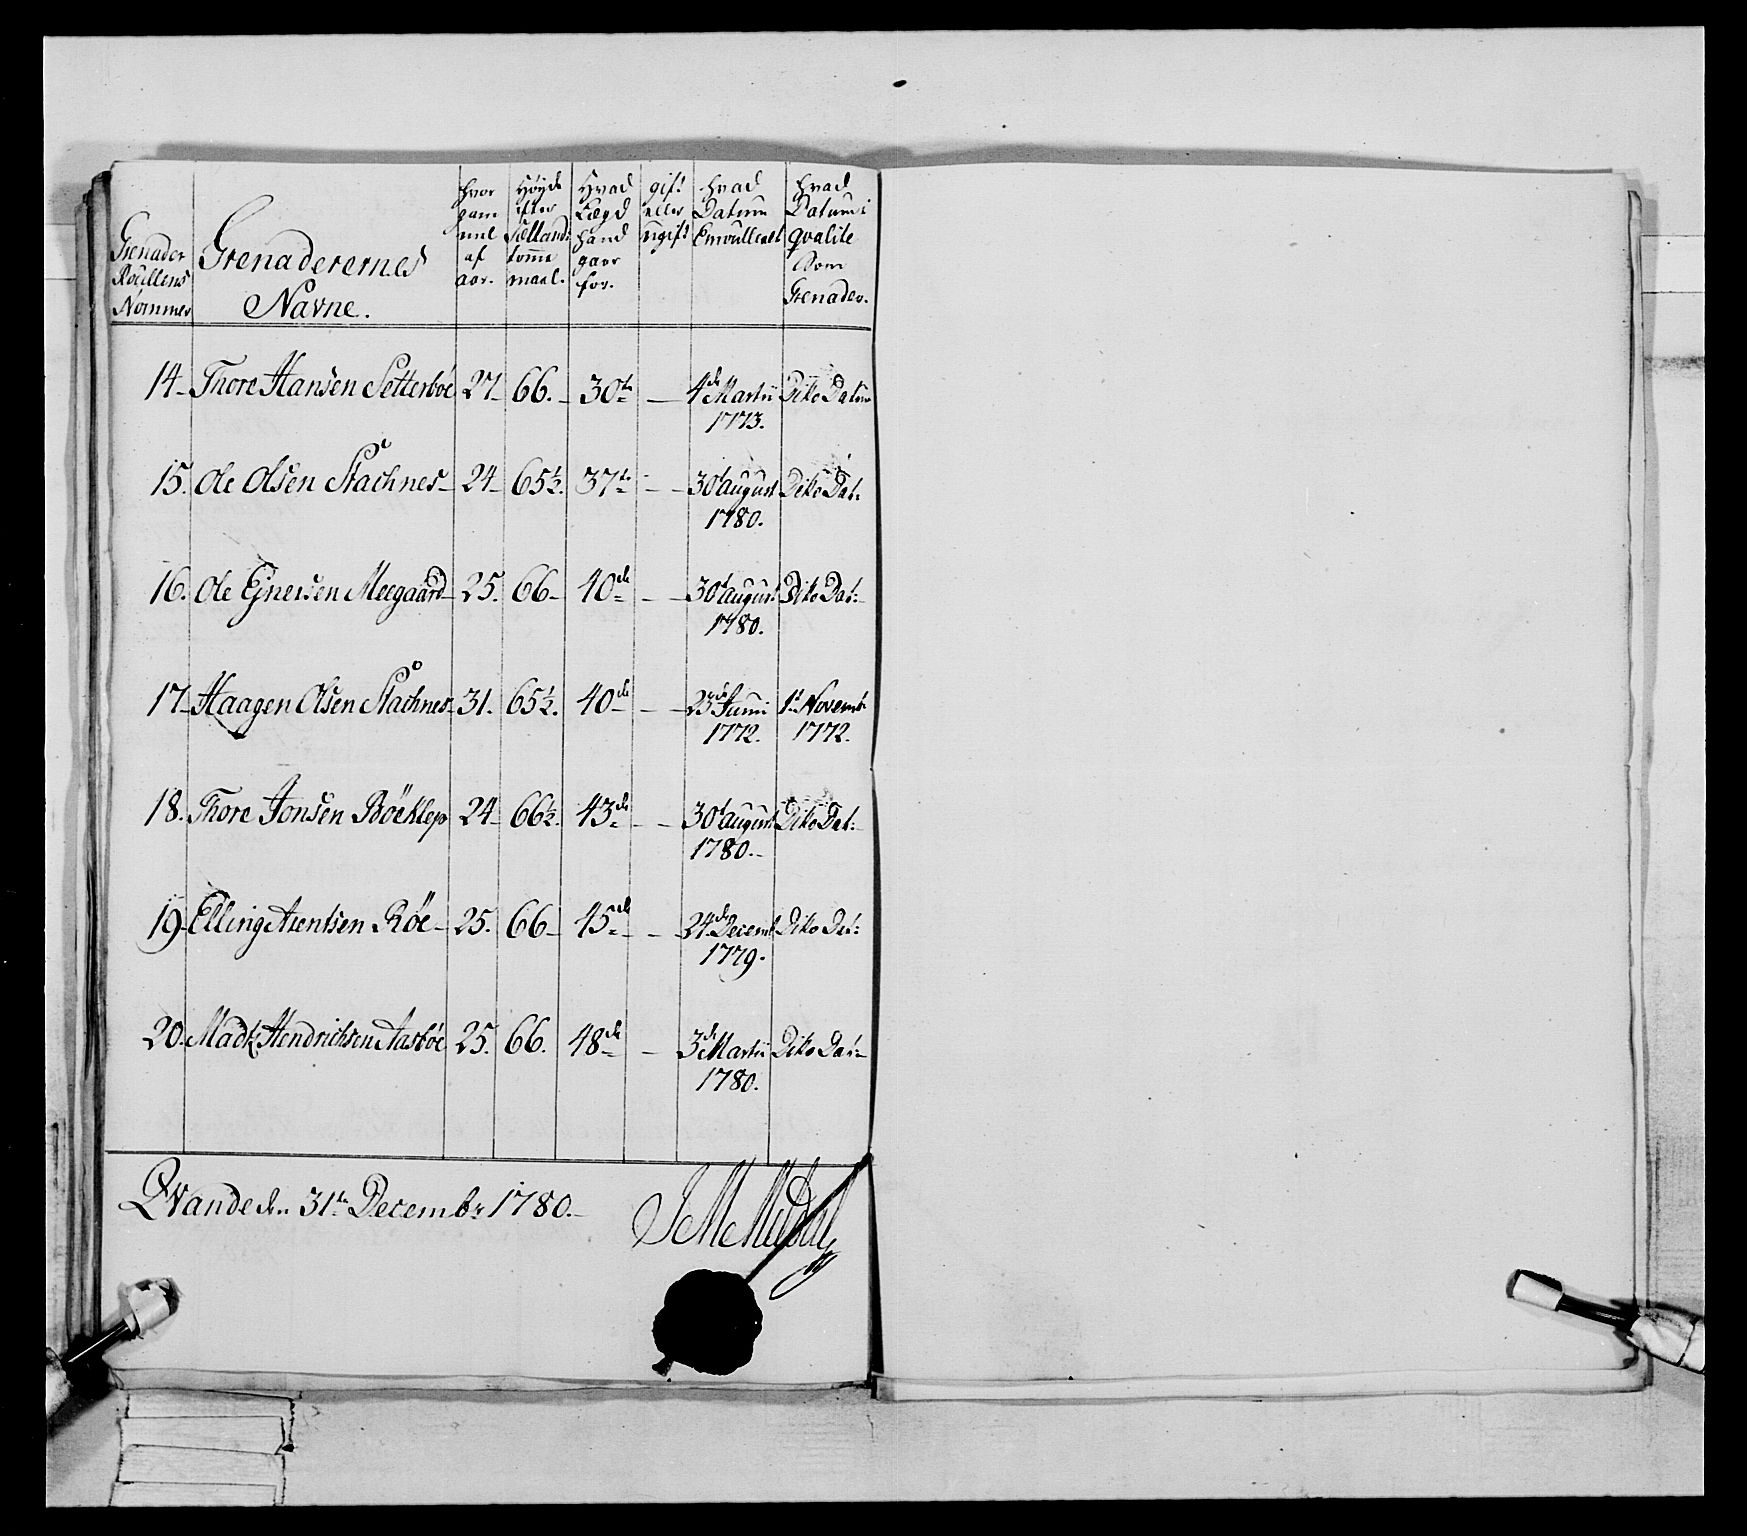 Grenader Roullens Nommer | Grenaderernes Navne. | hvor gam mel af aar. | Høyde efter Sællands tomme maal. | Hvad Lægd hand gaar for. | gift eller ugift | hvad Datum Enroulleret | hvad Datum i qvalite som Grenader.
14 Thore Hansen Setterbøe 27 66. 30te 4de Martii 1773. Dito Datum
15. Ole Olsen Stachnes 24 65½. 37te 30t august 1780. Dito Dat:
16. Ole Ejnersen Meegaard 25. 66 40de 30t august 1780. Dito Dat:
17 Haagen Olsen Stachnes 31. 65½. 40de 23de Junii 1772. 1t Novembr 1772.
18. Thore Jonsen Böeklep 24 66½. 43de 30t august 1780. Dito Dat:
19 Elling Arentsen Röe 25. 66 45de 24de Decemb 1779. Dito Dat:
20. Madz Hendrichsen Aasbøe 25. 66. 48de 3de Martii 1780. Dito Dat:
Qvande den 31te Decembr 1780.